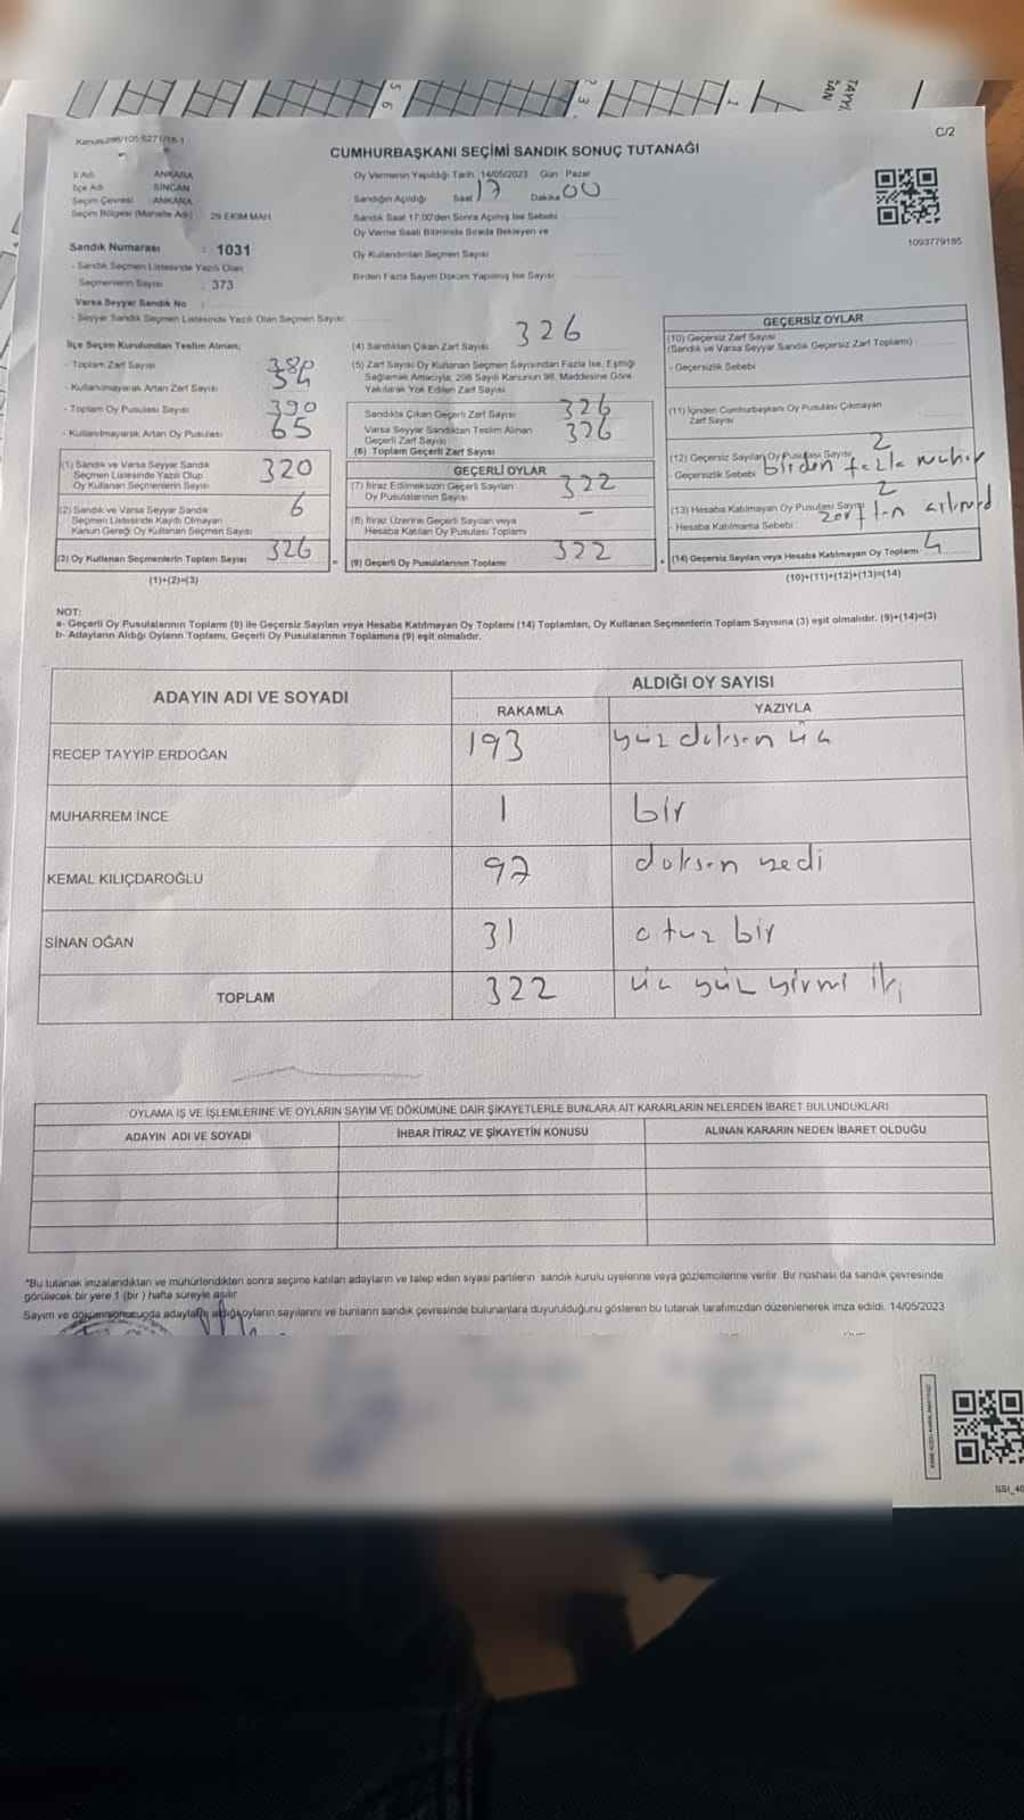 C/2
CUMHURBAŞKANI SEÇİMİ SANDIK SONUÇ TUTANAĞI
İl Adı ANKARA
İlçe Adı SİNCAN
Seçim Çevresi : ANKARA
Seçim Bölgesi (Mahalle Adı) : 29 EKİM MAH.
Oy Vermenin Yapıldığı Tarih 14/05/2023 Gün Pazar
Sandığın Açıldığı Saat 17 Dakika 00
Sandık Saat 17:00'den Sonra Açılmış İse Sebebi
Oy Verme Saati Bitiminde Sırada Bekleyen ve
Oy Kullandırılan Seçmen Sayısı
Birden Fazla Sayım Döküm Yapılmış İse Sayısı
1093779185
Sandık Numarası : 1031
- Sandık Seçmen Listesinde Yazılı Olan
Seçmenlerin Sayısı : 373
Varsa Seyyar Sandık No
- Seyyar Sandık Seçmen Listesinde Yazılı Olan Seçmen Sayısı:
İlçe Seçim Kurulundan Teslim Alınan;
- Toplam Zarf Sayısı 380
- Kullanılmayarak Artan Zarf Sayısı 54
- Toplam Oy Pusulası Sayısı 390
- Kullanılmayarak Artan Oy Pusulası 65
(1) Sandık ve Varsa Seyyar Sandık
Seçmen Listesinde Yazılı Olup
Oy Kullanan Seçmenlerin Sayısı 320
(2) Sandık ve Varsa Seyyar Sandık
Seçmen Listesinde Kayıtlı Olmayan
Kanun Gereği Oy Kullanan Seçmen Sayısı 6
(3) Oy Kullanan Seçmenlerin Toplam Sayısı 326
(1)+(2)=(3)
(4) Sandıktan Çıkan Zarf Sayısı 326
(5) Zarf Sayısı Oy Kullanan Seçmen Sayısından Fazla İse, Eşitliği
Sağlamak Amacıyla, 298 Sayılı Kanunun 98. Maddesine Göre
Yakılarak Yok Edilen Zarf Sayısı
Sandıkta Çıkan Geçerli Zarf Sayısı 326
Varsa Seyyar Sandıktan Teslim Alınan
Geçerli Zarf Sayısı
(6) Toplam Geçerli Zarf Sayısı 326
GEÇERLİ OYLAR
(7) İtiraz Edilmeksizin Geçerli Sayılan
Oy Pusulalarının Sayısı 322
(8) İtiraz Üzerine Geçerli Sayılan veya
Hesaba Katılan Oy Pusulası Toplamı –
(9) Geçerli Oy Pusulalarının Toplamı 322
GEÇERSİZ OYLAR
(10) Geçersiz Zarf Sayısı
(Sandık ve Varsa Seyyar Sandık Geçersiz Zarf Toplamı)
- Geçersizlik Sebebi
(11) İçinden Cumhurbaşkanı Oy Pusulası Çıkmayan
Zarf Sayısı
(12) Geçersiz Sayılan Oy Pusulası Sayısı 2
- Geçersizlik Sebebi birden fazla mühür
(13) Hesaba Katılmayan Oy Pusulası Sayısı 2
- Hesaba Katılmama Sebebi : zarftan
(14) Geçersiz Sayılan veya Hesaba Katılmayan Oy Toplamı 4
(10)+(11)+(12)+(13)=(14)
NOT:
a- Geçerli Oy Pusulalarının Toplamı (9) ile Geçersiz Sayılan veya Hesaba Katılmayan Oy Toplamı (14) Toplamları, Oy Kullanan Seçmenlerin Toplam Sayısına (3) eşit olmalıdır. (9)+(14)=(3)
b- Adayların Aldığı Oyların Toplamı, Geçerli Oy Pusulalarının Toplamına (9) eşit olmalıdır.
ADAYIN ADI VE SOYADI ALDIĞI OY SAYISI
RAKAMLA YAZIYLA
RECEP TAYYİP ERDOĞAN 193 yüz doksan üç
MUHARREM İNCE 1 bir
KEMAL KILIÇDAROĞLU 97 doksan yedi
SİNAN OĞAN 31 otuz bir
TOPLAM 322 üç yüz yirmi iki
OYLAMA İŞ VE İŞLEMLERİNE VE OYLARIN SAYIM VE DÖKÜMÜNE DAİR ŞİKAYETLERLE BUNLARA AİT KARARLARIN NELERDEN İBARET BULUNDUKLARI
ADAYIN ADI VE SOYADI İHBAR İTİRAZ VE ŞİKAYETİN KONUSU ALINAN KARARIN NEDEN İBARET OLDUĞU
*Bu tutanak imzalandıktan ve mühürlendikten sonra seçime katılan adayların ve talep eden siyasi partilerin sandık kurulu üyelerine veya gözlemcilerine verilir. Bir nüshası da sandık çevresinde
görülecek bir yere 1 (bir) hafta süreyle asılır.
Sayım ve döküm sonucunda adayların aldığı oyların sayılarını ve bunların sandık çevresinde bulunanlara duyurulduğunu gösteren bu tutanak tarafımızdan düzenlenerek imza edildi. 14/05/2023